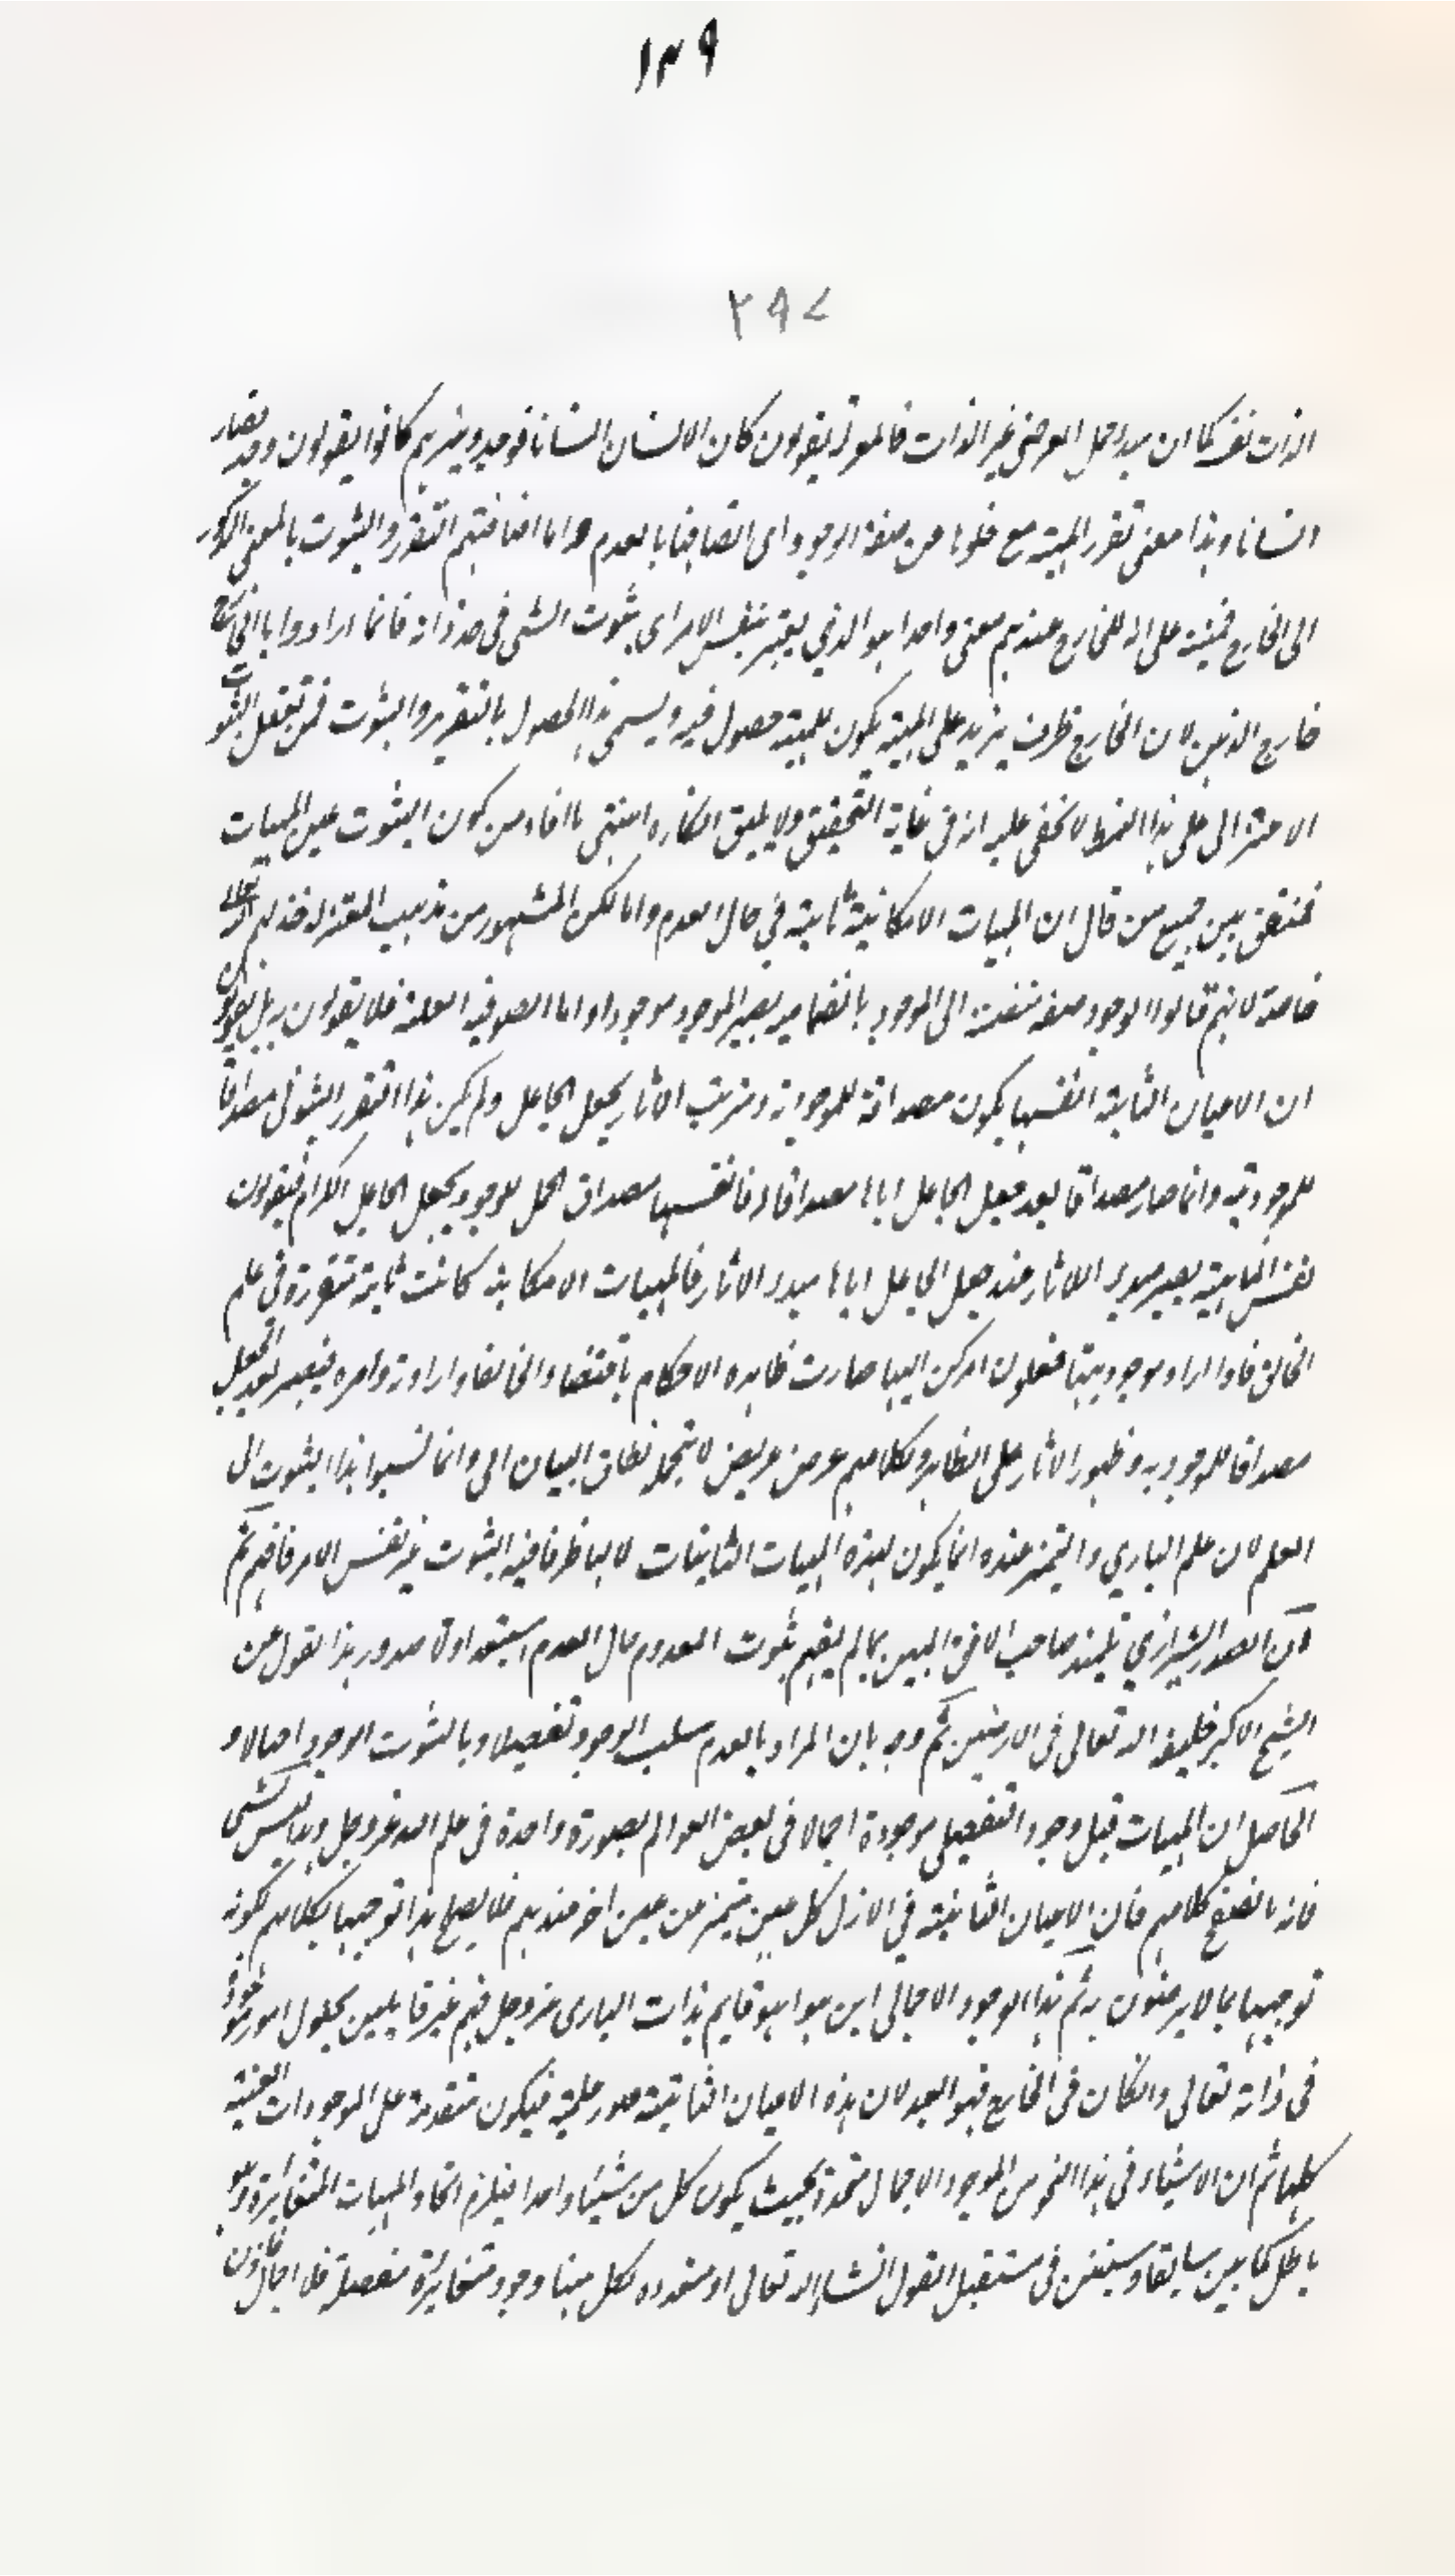 ١٣٩
٢٩٧
الذات نفسه كما ان مبدا حمل العرضي غير الذات فالمعتزلة يقولون كان الانسان انسانا فوجد وغيرهم كانوا يقولون وجد فصار
انسانا وهذا معنى تقرر المهية مع خلوها عن صفة الوجود اى اتصافها بالعدم واما اضافتهم التقرر والثبوت بالمعنى المذكور
الى الخارج فمبنية على ان للخارج عندهم معنى واحدا هو الذي يعبر بنفس الامر اى ثبوت الشى فى حد ذاته فانما ارادوا بالخارج
خارج الذهن لان الخارج ظرف يزيد على المهية يكون للمهية حصول فيه ويسمى هذا الحصول بالتقرر والثبوت فمن تعقل الثبوت
الاعتزالى على هذا النمط لا يخفى عليه انه فى غاية التحقيق ولا يليق انكاره انتهى ما افاد من كون الثبوت عين المهيات
فمتفق بين جميع من قال ان المهيات الامكانية ثابتة في حال العدم واما لكن المشهور من مذهب المعتزلة خذلهم الله تعالى
خاصة لانهم قالوا الوجود صفة منضمة الى الموجود بانضمامه يصير الموجود موجودا واما الصوفية العلية فلا يقولون به بل يقولون
ان الاعيان الثابتة انفسها يكون مصداقة للموجودية وترتب الاثار بجعل الجاعل ولم يكن هذا التقرر الثبوتى مصداقا
للموجودية وانما صار مصداقا بعد جعل الجاعل اياها مصداقا فانفسها مصداق لحمل الموجود بجعل الجاعل الكرام فيقولون
نفس الماهية يصير مبدء الاثار عند جعل الجاعل اياها مبدء الاثار فالمهيات الامكانية كانت ثابتة متقررة في علم
الخالق فاذا اراد موجوديتها فعلون امركن اليها صارت ظاهره الاحكام باقتضاء الخالق وارادته وامره فيصير بعد الجعل
مصداقا للموجودية وظهور الاثار على الظاهر وكلامهم عرض عريض لا يتحمله نطاق البيان الى وانما نسبوا هذا الثبوت الى
العلم لان علم البارى والتميز عنده انما يكون لهذه المهيات الثابتات لا انها ظرفا فيه الثبوت غير نفس الامر فافهم ثم
ان الصدر الشيرازي تلميذ صاحب الافق المبين لما لم يفهم ثبوت المعدوم حال العدم استبعد اولا صدور هذا القول عن
الشيخ الاكبر خليفة الله تعالى فى الارضين ثم وجه بان المراد بالعدم سلب الوجود تفصيلا وبالثبوت الوجود اجمالا و
الحاصل ان المهيات قبل وجود التفصيلى موجودة اجمالا فى بعض العوالم بصورة واحدة فى علم الله عز وجل وهذا ليس بشى
فانه ما نصع كلامهم فان الاعيان الثابتة في الازل كل عين يتميز من عين اخر عندهم فلا يصلح هذا توجيها لكلامهم لكونه
توجيها بما لا يرضون به ثم هذا الوجود الاجمالى اين هو اهو قايم بذات البارى عز وجل فهم غير قايلين بحلول امور موجودة
فى ذاته تعالى وان كان فى الخارج فهو ابعد لان هذه الاعيان الثابتة صور علمية فيكون متقدمة على الموجودات العينية
كلها ثم ان الاشياء فى هذا النحو من الوجود الاجمالى متحدة بحيث يكون كل من شيئا واحدا فيلزم اتحاد المهيات المتغائرة وهو
باطل كما بين سابقا وسيتقن فى مستقبل القول انشاء الله تعالى او متعدده لكل منها وجود متغايرة منفصلة فلا اجمال فان